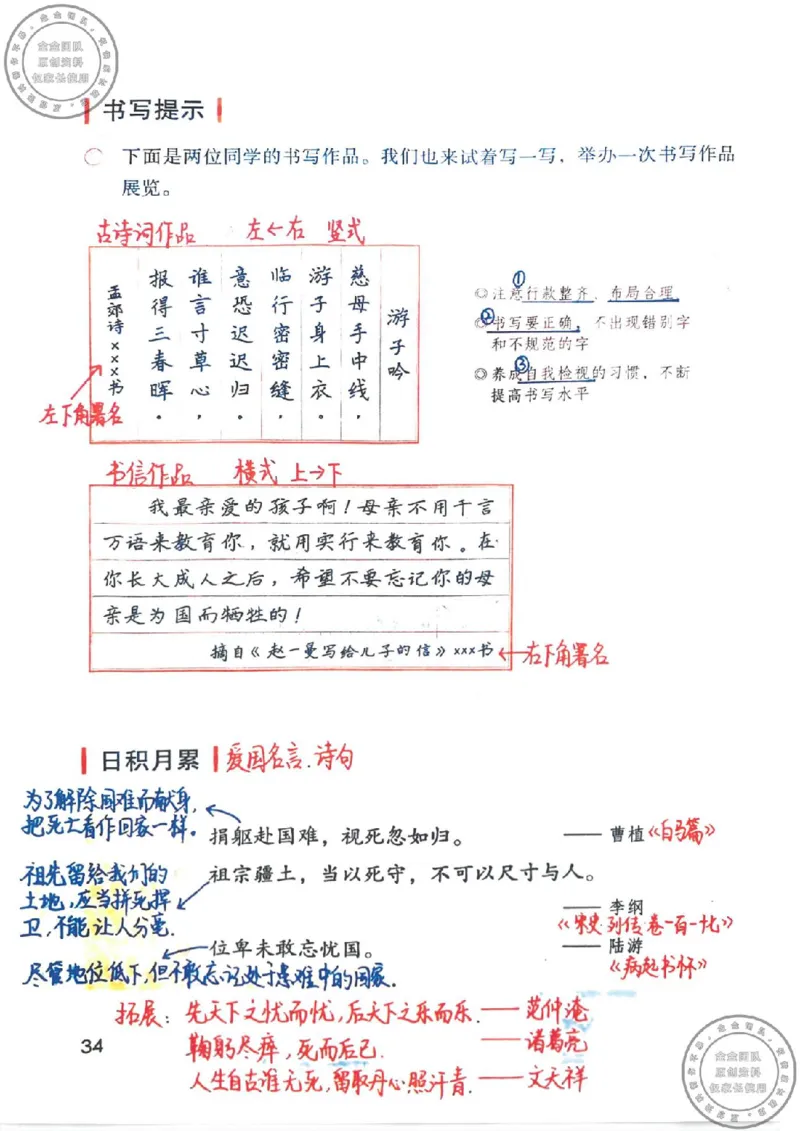 金金团队
原创资料
仅家长使用
书写提示
下面是两位同学的书写作品。我们也来试着写一写，举办一次书写作品
展览。
古诗词作品 左←右 竖式
游子吟
慈母手中线，
游子身上衣。
临行密密缝，
意恐迟迟归。
谁言寸草心，
报得三春晖。
孟郊诗×××书
左下角署名
◎注意行款整齐、布局合理。
①
◎书写要正确，不出现错别字
②
和不规范的字
◎养成自我检视的习惯，不断
③
提高书写水平
书信作品 横式 上→下
我最亲爱的孩子啊！母亲不用千言
万语来教育你，就用实行来教育你。在
你长大成人之后，希望不要忘记你的母
亲是为国而牺牲的！
摘自《赵一曼写给儿子的信》×××书
右下角署名
日积月累 爱国名言.诗句
为了解除国难而献身，
把死亡看作回家一样。
捐躯赴国难，视死忽如归。 ——曹植《白马篇》
祖先留给我们的
土地，应当拼死捍
卫，不能让人分毫.
祖宗疆土，当以死守，不可以尺寸与人。
——李纲
《宋史·列传·卷一百一十七》
位卑未敢忘忧国。 ——陆游
《病起书怀》
尽管地位低下，但不敢忘记处于患难中的国家.
拓展：先天下之忧而忧，后天下之乐而乐.——范仲淹
鞠躬尽瘁，死而后已.——诸葛亮
人生自古谁无死，留取丹心照汗青.——文天祥
34
金金团队
原创资料
仅家长使用